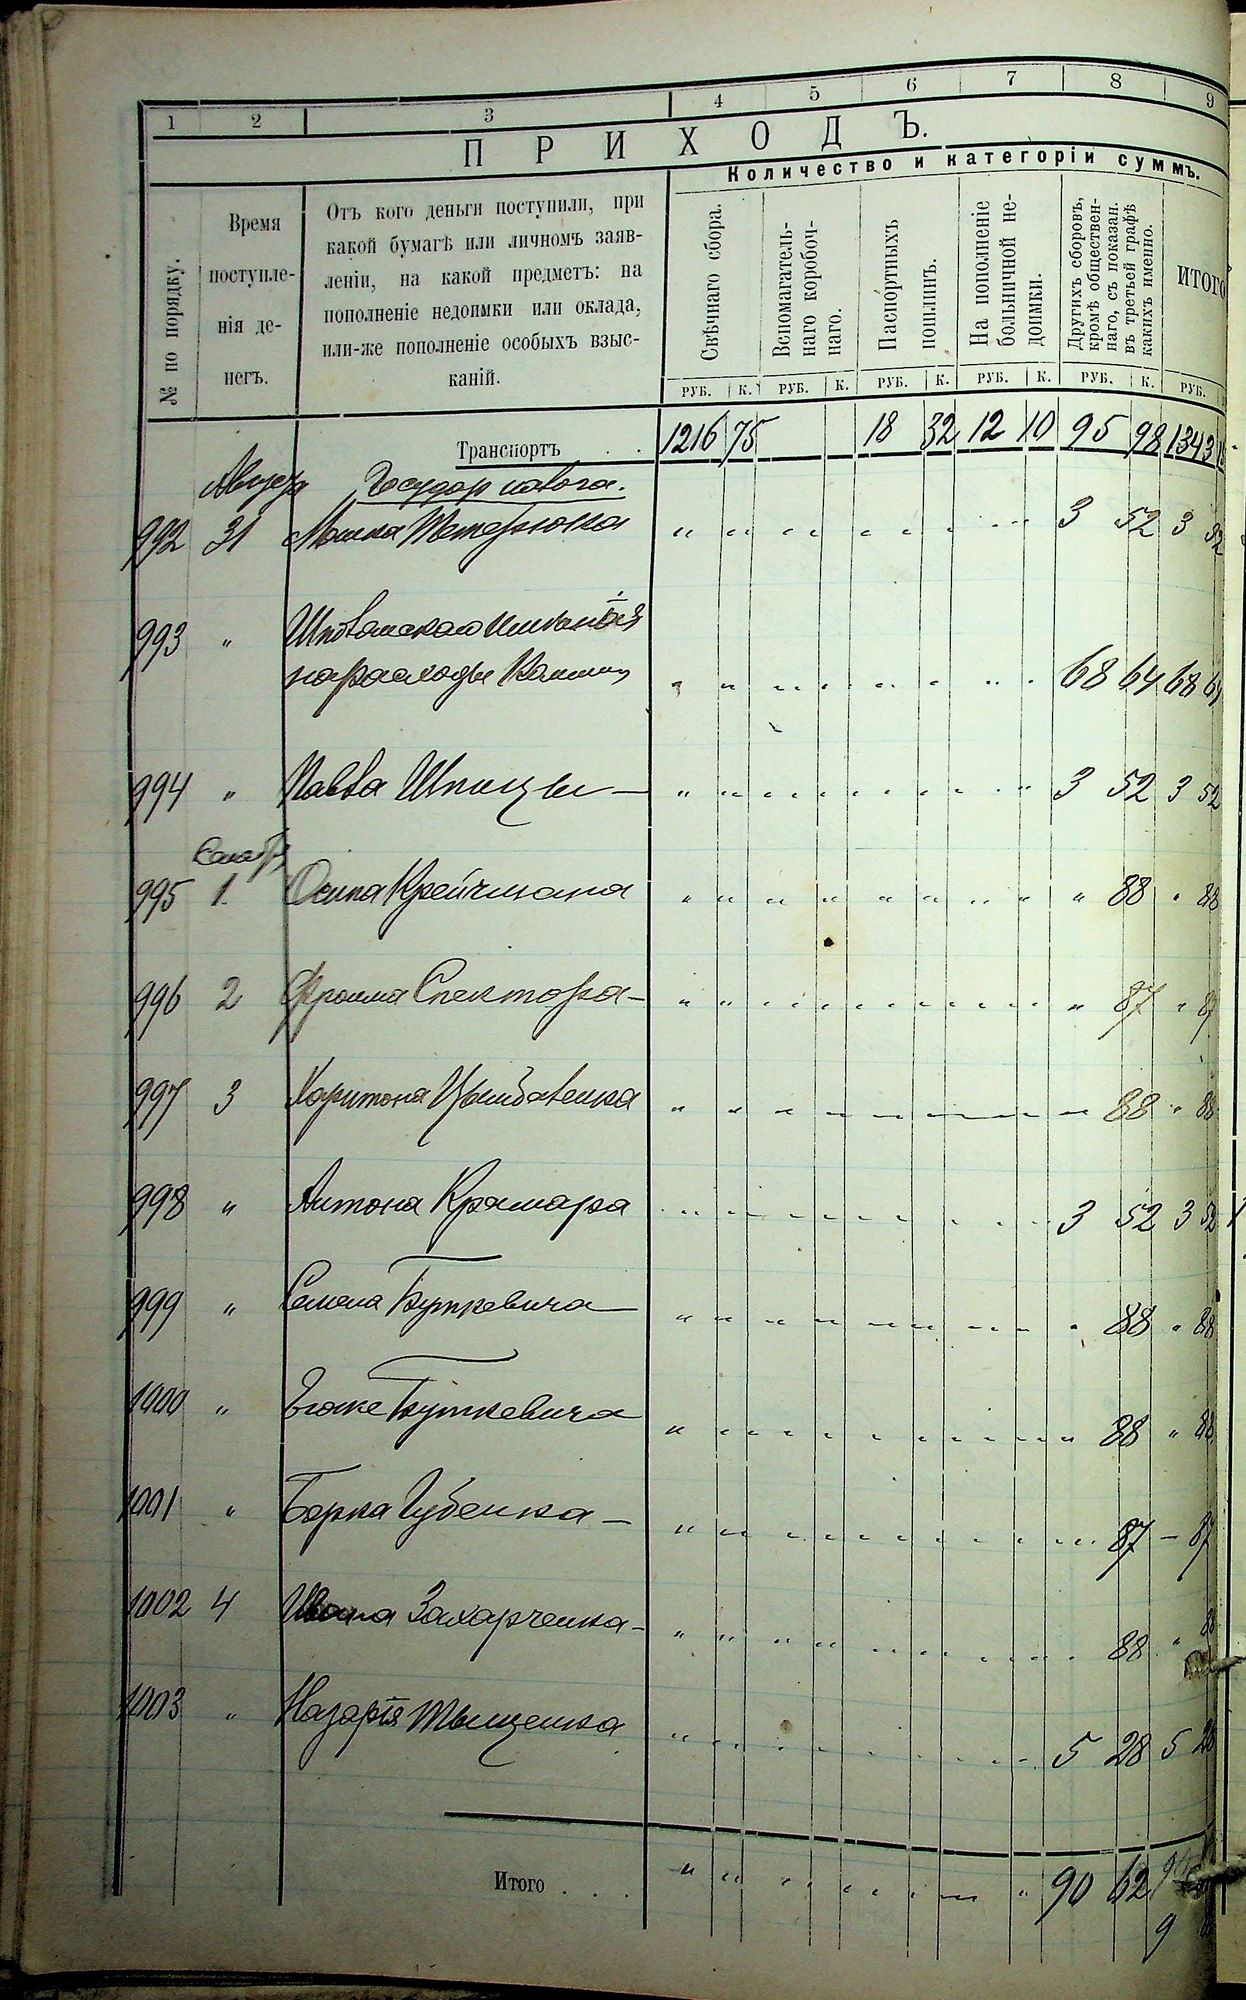 1 2 3 4 5 6 7 8 9
ПРИХОДЪ.
Количество и категоріи суммъ.
№ по порядку.
Время
поступле-
нія де-
негъ.
Отъ кого деньги поступили, при
какой бумагѣ или личномъ заяв-
леніи, на какой предметъ: на
пополненіе недоимки или оклада,
или-же пополненіе особыхъ взыс-
каній.
Свѣчнаго сбора.
Вспомагатель-
наго коробоч-
наго.
Паспортныхъ
пошлинъ.
На пополненіе
больничной не-
доимки.
Другихъ сборовъ,
кромѣ обществен-
наго, съ показан.
въ третьей графѣ
какихъ именно.
ИТОГО
РУБ. К. РУБ. К. РУБ. К. РУБ. К. РУБ. К. РУБ.
Транспортъ . . 1216 75 18 32 12 10 95 98 1343
Августа Государ налога.
992 31 Мошка Тетерюка " " " " " " " " 3 52 3 52
993 "
на расходы " " " " " " " " 68 64 68 64
994 " Павла Шпицы — " " " " " " " " 3 52 3 52
Сентяб
995 1 Осипа Крейчмана " " " " " " " " " 88 " 88
996 2 Фроима Спектора — " " " " " " " " " 87 " 87
997 3 Харитона Цымбаленка " " " " " " " " " 88 " 88
998 " Антона Крамара " " " " " " " " 3 52 3 52
999 " Семена Буткевича " " " " " " " " " 88 " 88
1000 " Буткевича " " " " " " " " " 88 " 88
1001 " Берка Губенка — " " " " " " " " " 87 — 87
1002 4 Ивана Захарченка — " " " " " " " " " 88 " 88
1003 " Назарія Тыщенка " " " " " " " " 5 28 5 28
Итого . . . " " " " " " " " 90 62